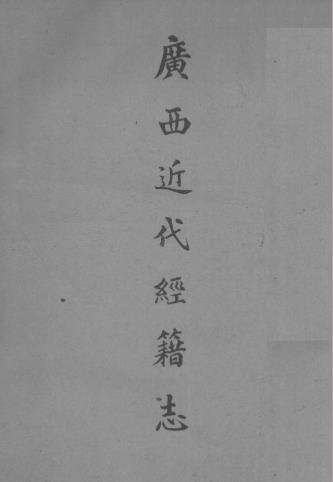 廣西近代經籍志